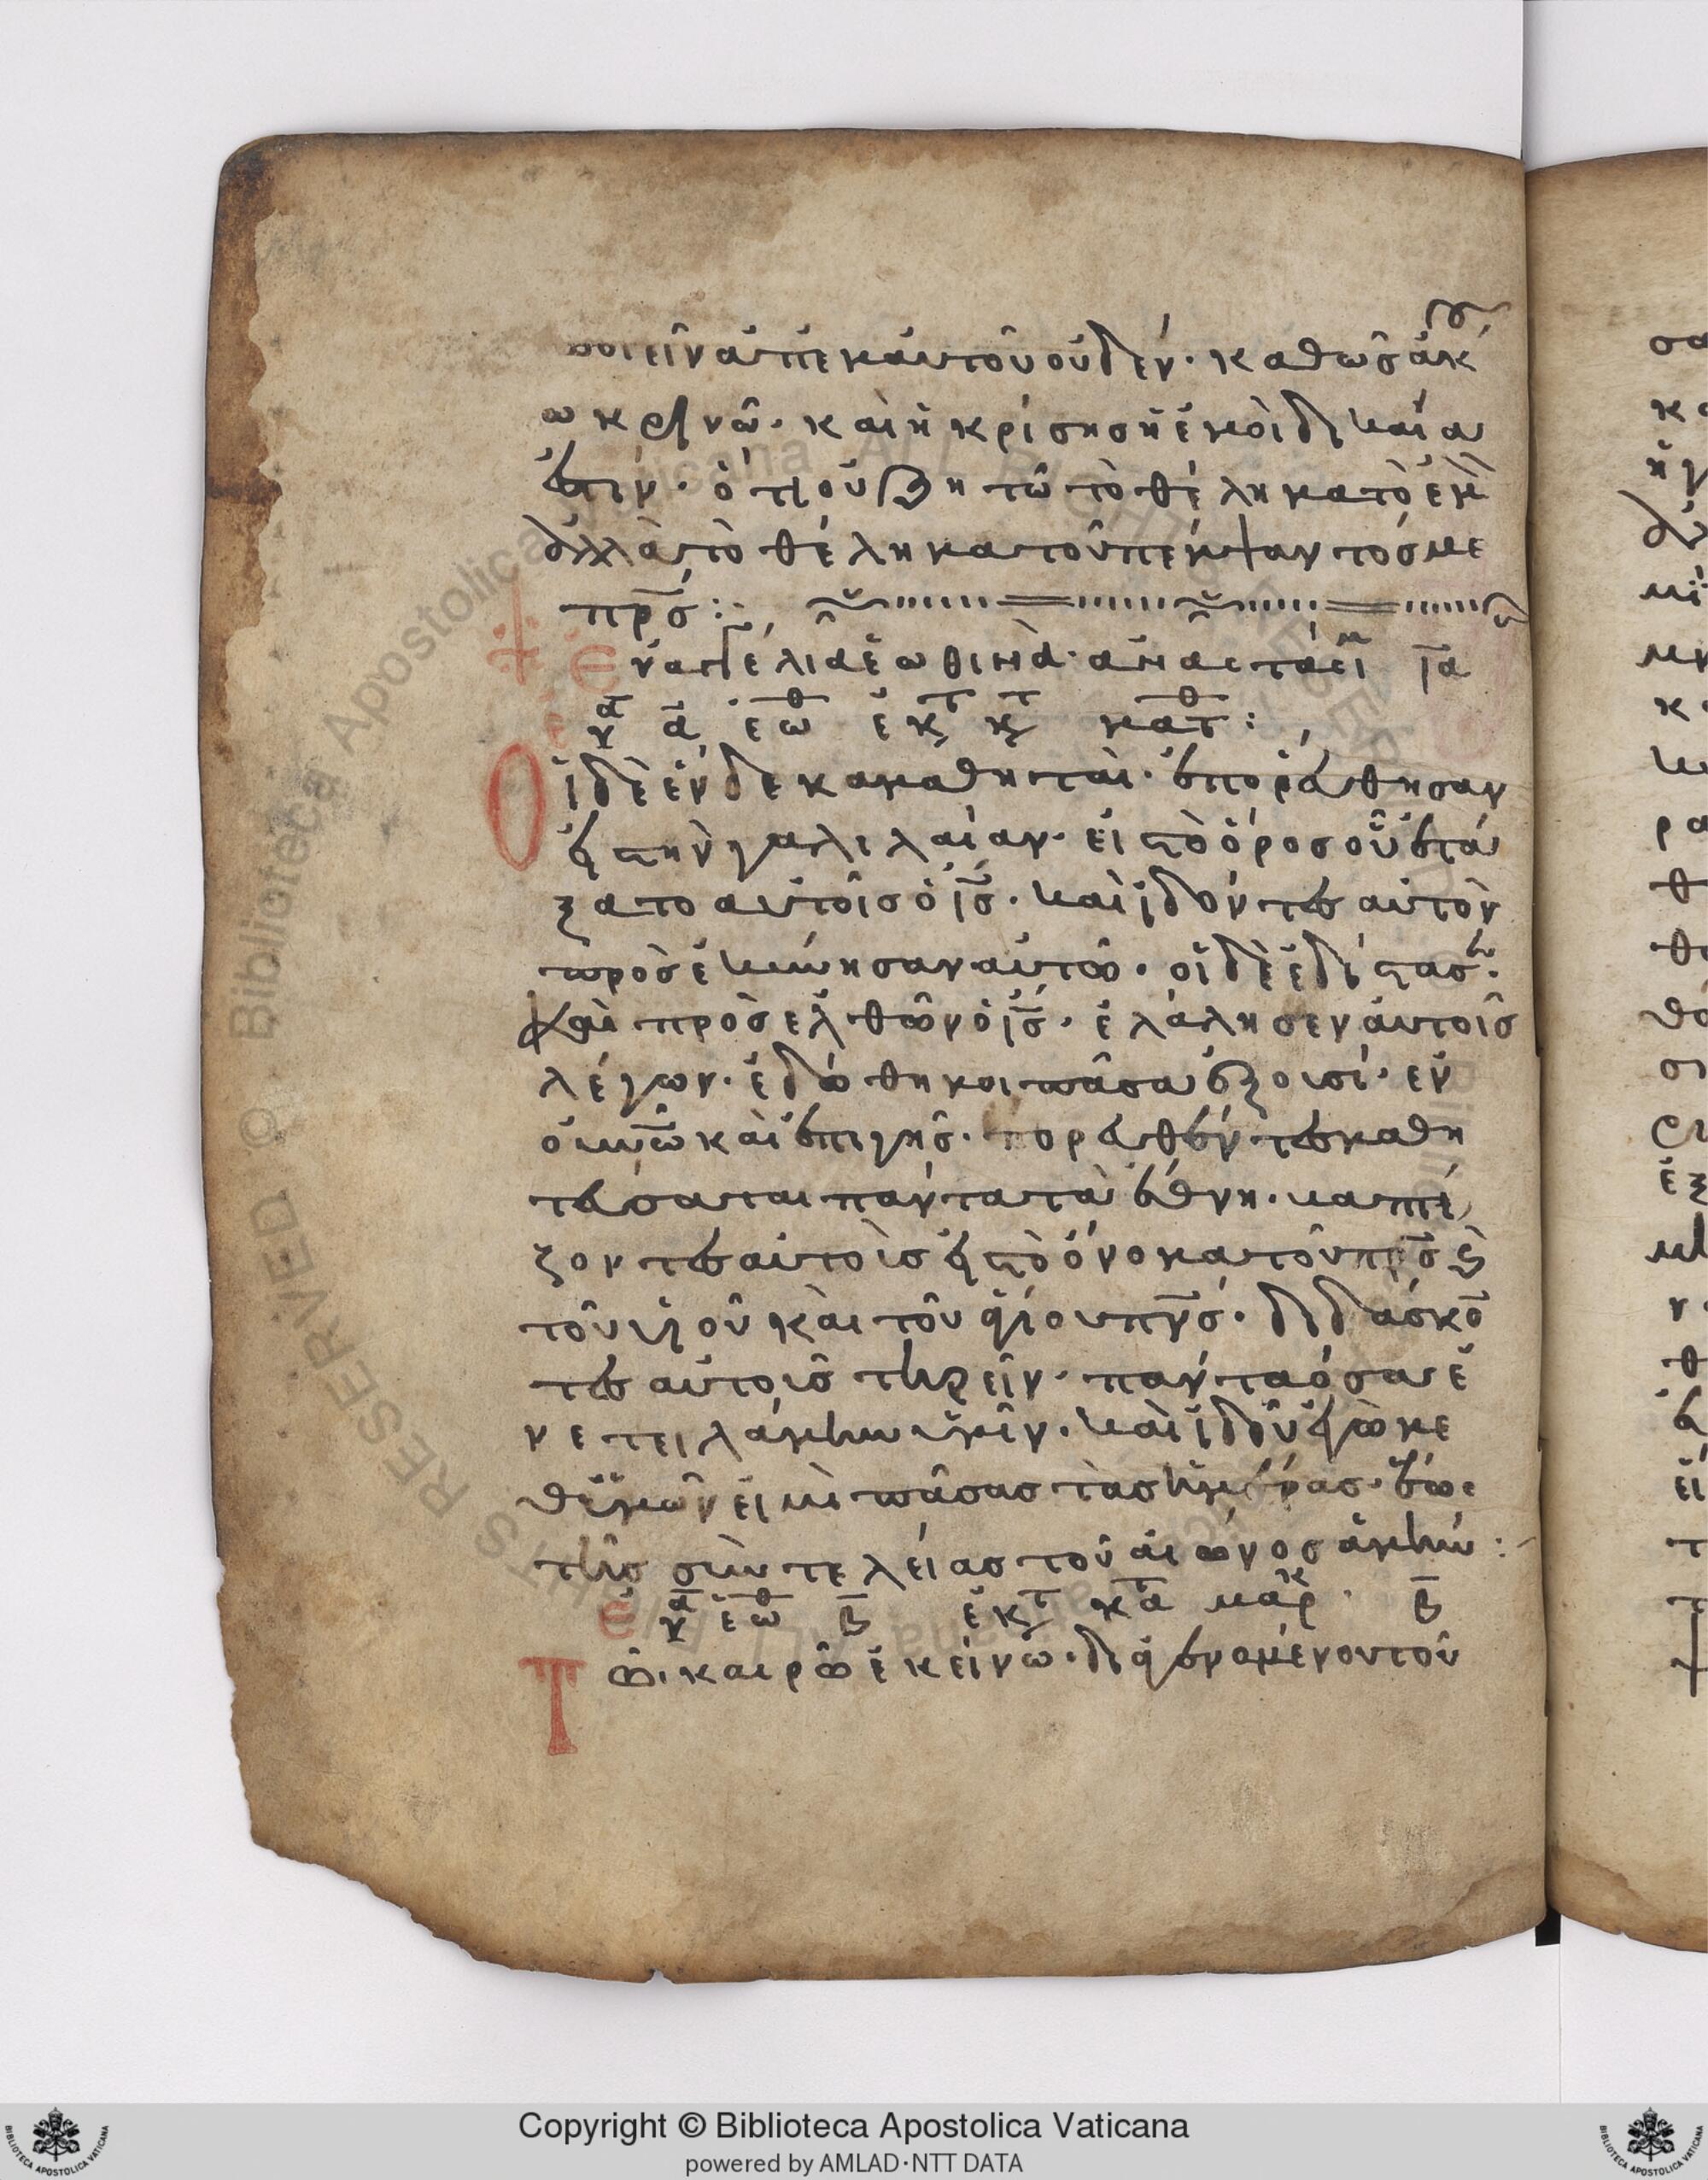 ποιεῖν ἀπ' ἐμαυτοῦ οὐδέν· καθὼς ἀκού
ω κρίνω· καὶ ἡ κρίσης ἡ ἐμοὶ δικαία
ἐστίν· ὅτι οὐ ζητῶ τὸ θέλημα τὸ ἐμὸν
ἀλλὰ τὸ θέλημα τοῦ πέμψαντός με
πρς:
εὐαγγελια ἑωθινὰ· ἀναστάσι ια
ευα α εωθ ἐκ τ κτ ματθ:
Οἱ δὲ ἕνδεκα μαθηταὶ· ἐπορεύθησαν
εἰς τὴν γαλιλαίαν· εἰς τὸ ὄρος οὗ ἐτά
ξατο αὐτοῖς ὁ ις· καὶ ἰδόντες αὐτὸν
προσεκύνησαν αὐτῶ· οἱ δὲ ἐδίστασαν·
Καὶ προσελθῶν ὁ ις· ἐλάλησεν αὐτοῖς
λέγων· ἐδώθη μοι πᾶσα ἐξουσί· ἐν
οὐνω καὶ ἐπι γῆς· πορευθέντες μαθη
τεύσαται πάντα τὰ ἔθνη· βαπτί
ζοντες αὐτοὶς εἰς τὸ ὄνομα τοῦ πρς καὶ
τοῦ υἱοῦ καὶ τοῦ ἁγίου πνς· διδάσκο
τες αὐτοῖς τηρεῖν· πάντα ὅσα ἐ
νετειλάμην ὑμῖν· καὶ ἰδοῦ ἐγὼ με
θ' ὑμῶν εἰμὶ πᾶσας τὰς ἡμέρας· ἕως
τῆς συντελείας τοῦ αἰῶνος ἀμήν:
ευα εωθ β ἐκ τ κτα μαρκ· β
Τῶ· καιρῶ ἐκείνω· διαγενομένου τοῦ
Copyright © Biblioteca Apostolica Vaticana
powered by AMLAD·NTT DATA